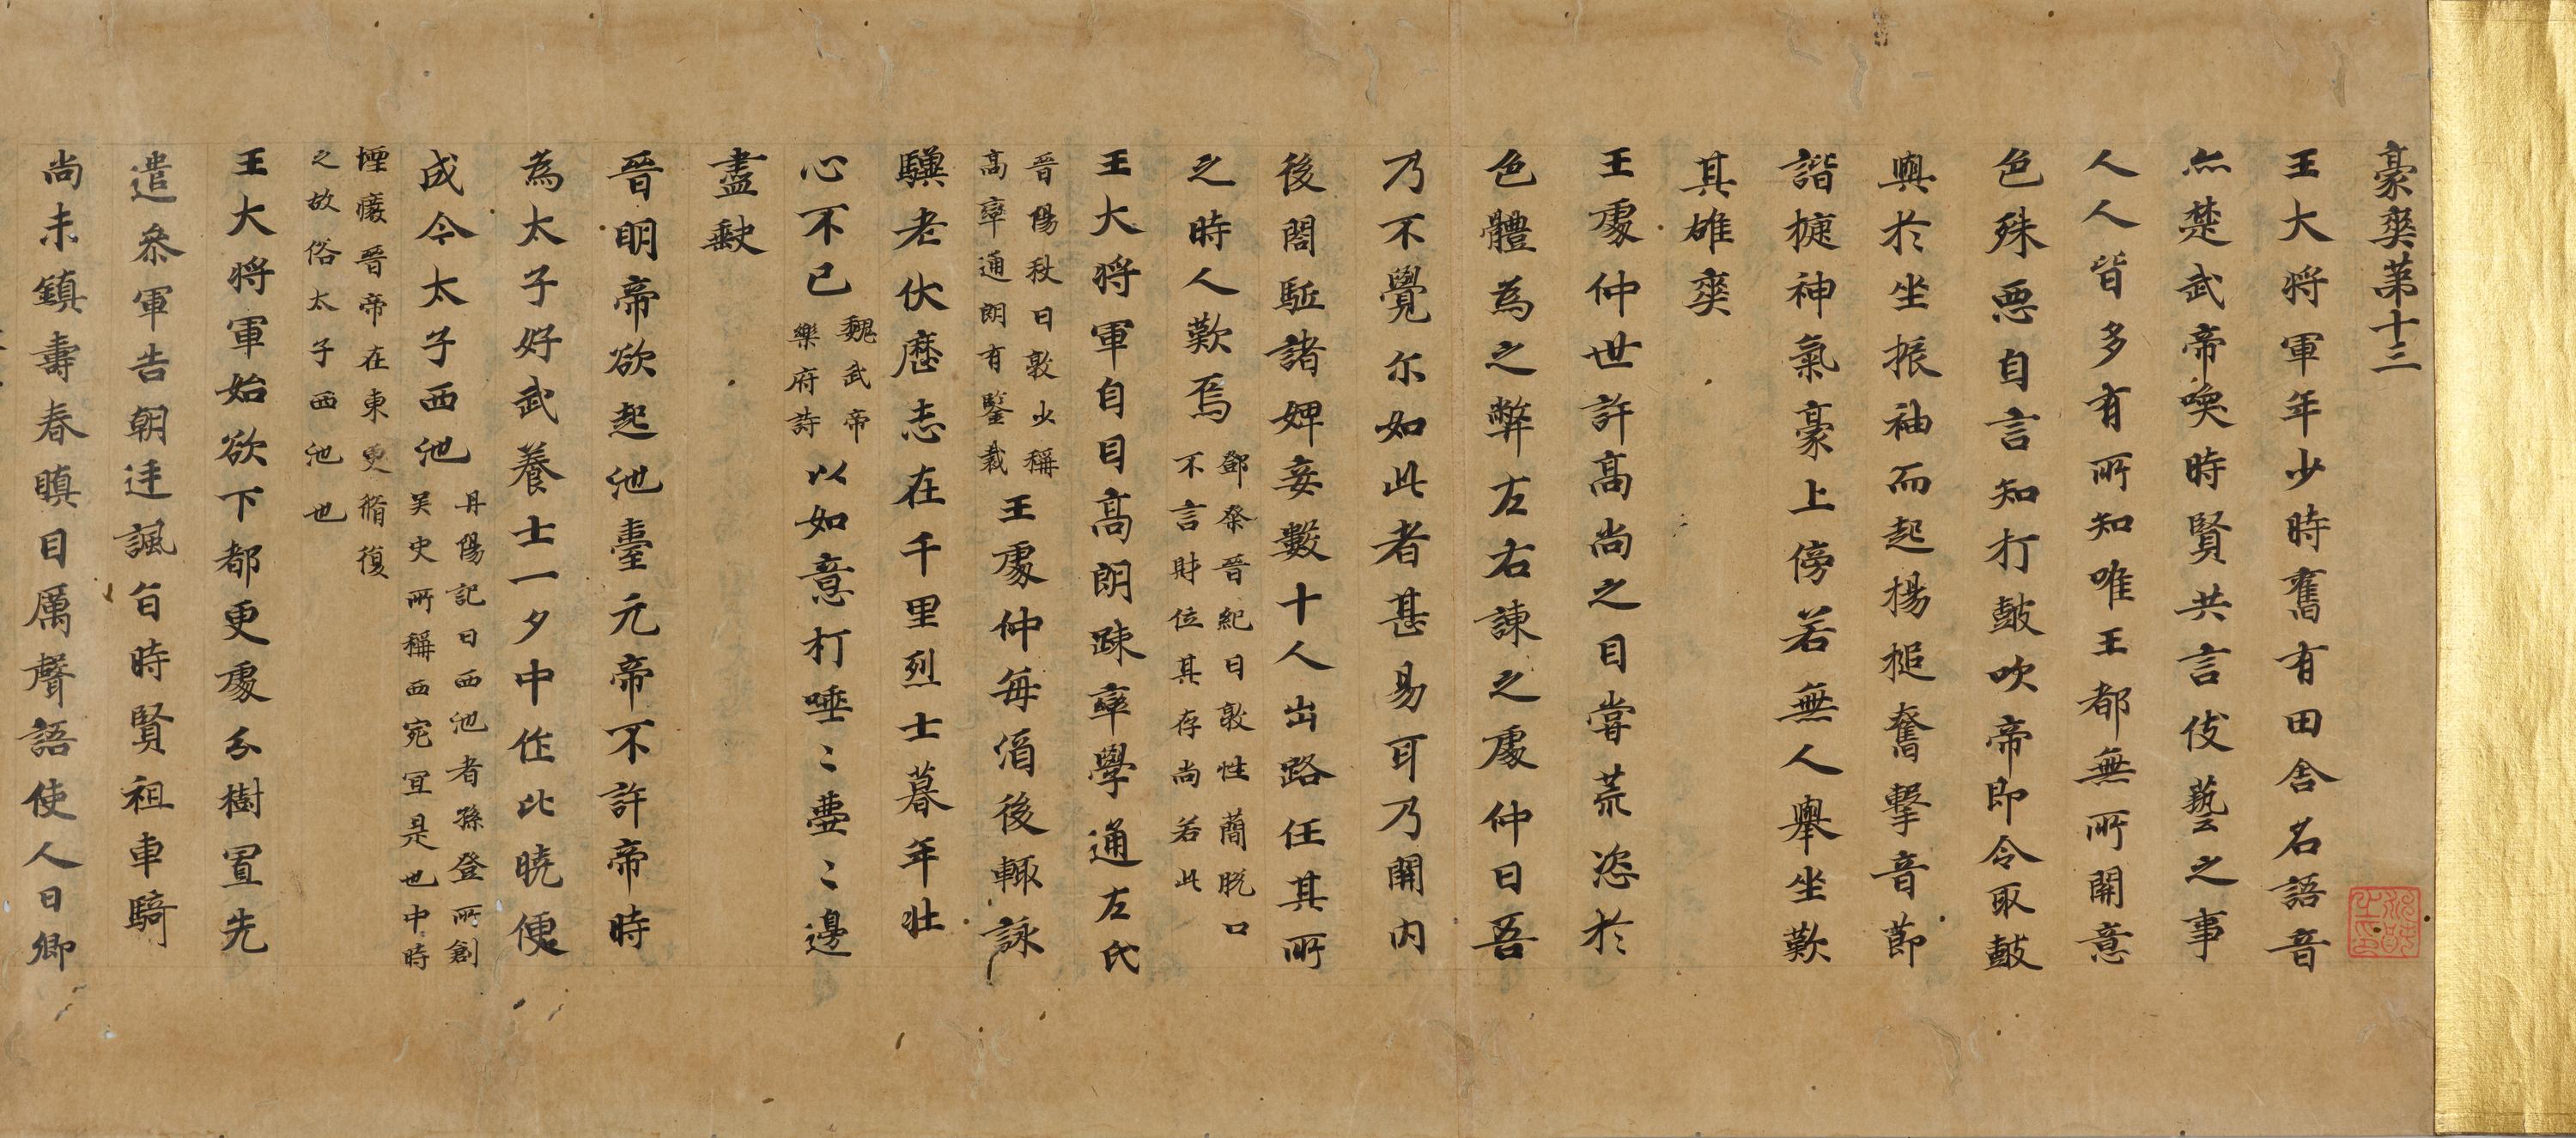 豪爽第十三
王大将軍年少時舊有田舎名語音
亦楚武帝喚時賢共言伎藝之事
人人皆多有所知唯王都無所開意
色殊悪自言知打皷吹帝即令取皷
與於坐振袖而起揚槌奮擊音節
諧捷神氣豪上傍若無人舉坐歎
其雄爽
王處仲世許髙尚之目甞荒恣於
色體為之弊左右諌之處仲曰吾
乃不覺尓如此者甚易耳乃開内
後閤駈諸婢妾數十人出路任其所
之時人歎焉
鄧粲晉紀曰敦性蕳脱口
不言財位其存尚若此
王大将軍自目髙朗踈率學通左氏
晉陽秋曰敦少稱
髙率通朗有鑒裁
王處仲每酒後輙詠
驥老伏歴志在千里烈士暮年壮
心不已
魏武帝
樂府詩
以如意打唾〻壷〻邊
盡缺
晉明帝欲起池臺元帝不許帝時
為太子好武養士一夕中作比曉便
成今太子西池
丹陽記曰西池者孫登所創
吴史所稱西宛冝是也中時
堙癈晉帝在東更脩復
之故俗太子西池也
王大将軍始欲下都更處分樹置先
遣叅軍告朝迋諷旨時賢祖車騎
尚未鎮壽春瞋目厲聲語使人曰卿